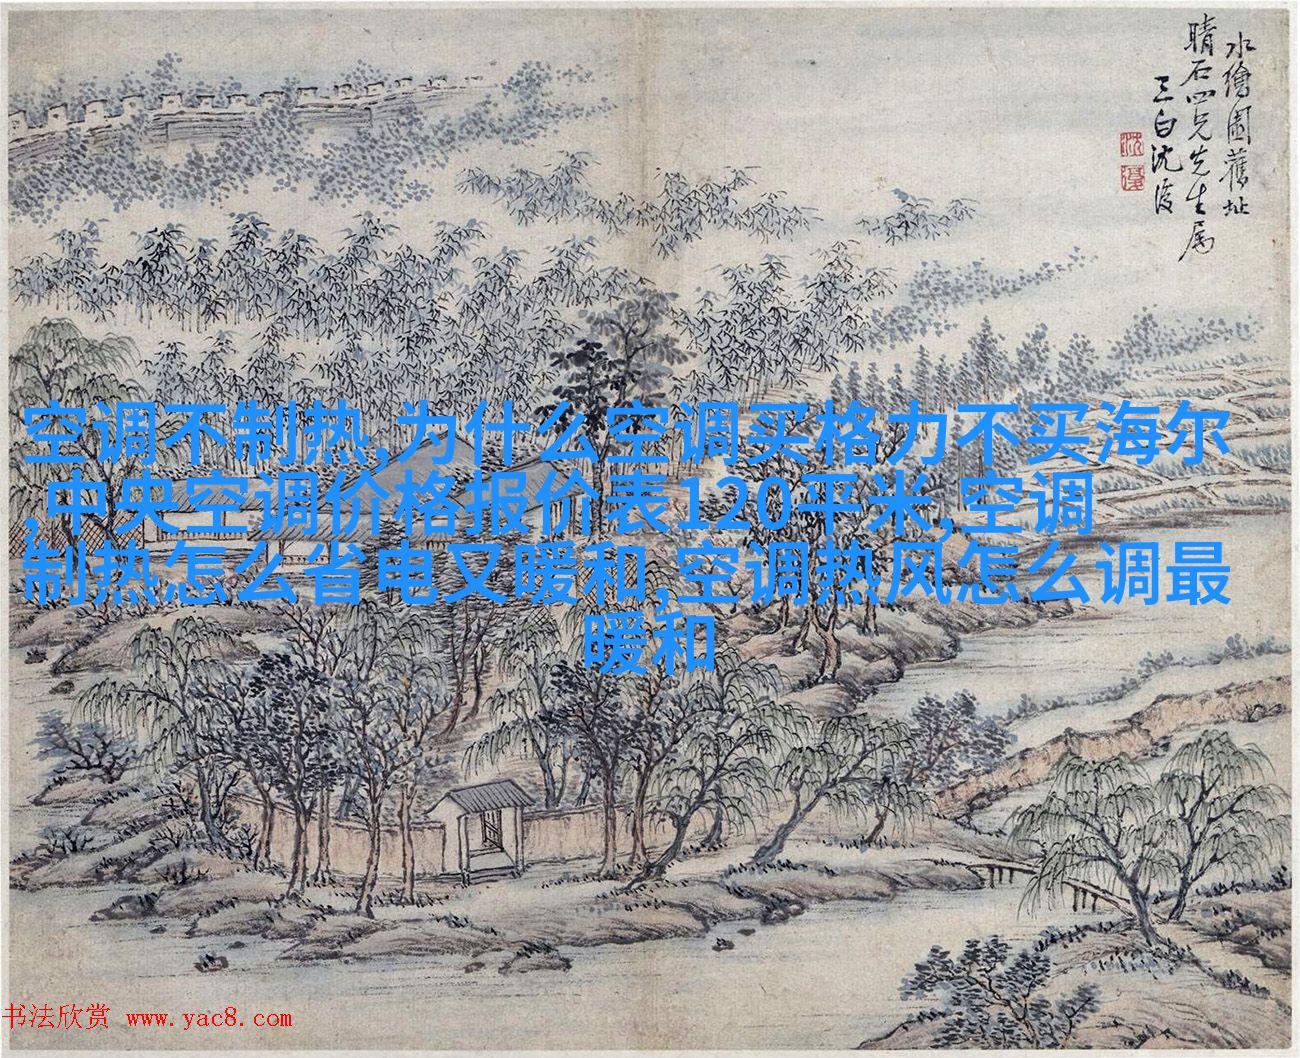 水繪園舊址
晴石四兄先生属
三白沈復
沈
復
空调不制热,为什么空调买格力不买海尔
,中央空调价格报价表120平米,空调
制热怎么省电又暖和,空调热风怎么调最
暖和
书法欣赏 www.yac8.com